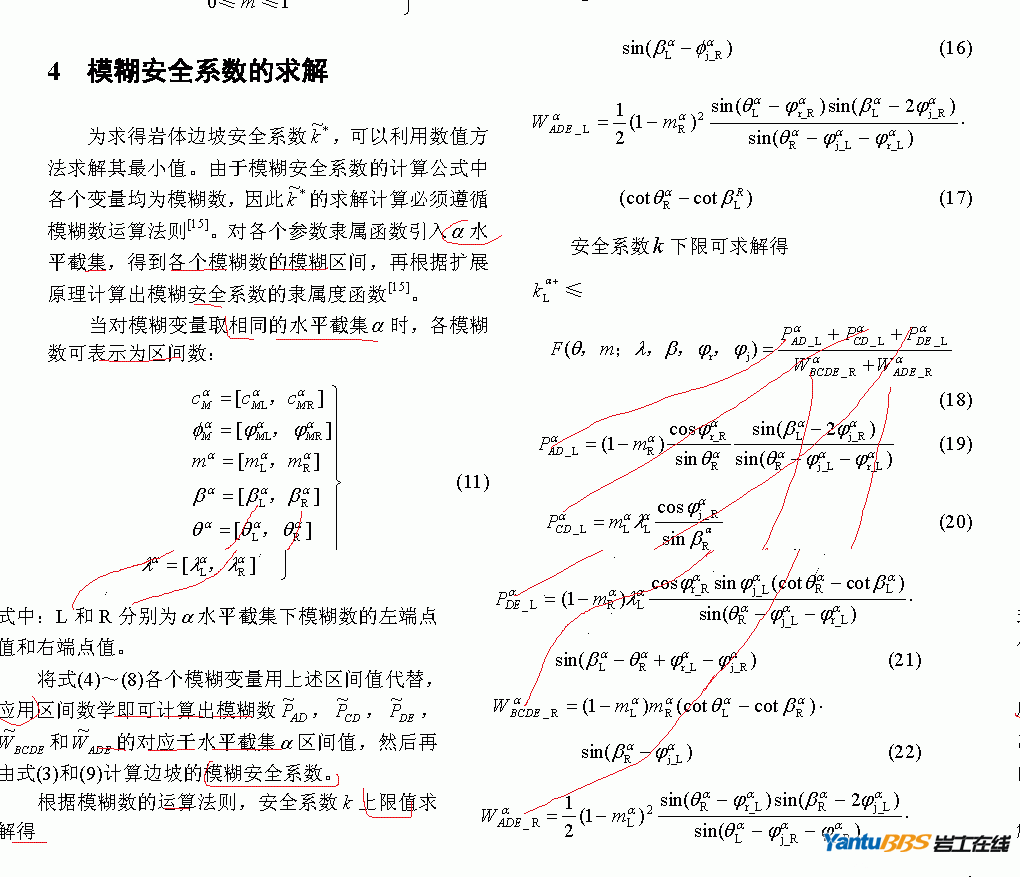 0≤ m ≤1
4 模糊安全系数的求解
为求得岩体边坡安全系数 k̃*，可以利用数值方
法求解其最小值。由于模糊安全系数的计算公式中
各个变量均为模糊数，因此 k̃* 的求解计算必须遵循
模糊数运算法则[15]。对各个参数隶属函数引入 α 水
平截集，得到各个模糊数的模糊区间，再根据扩展
原理计算出模糊安全系数的隶属度函数[15]。
当对模糊变量取相同的水平截集 α 时，各模糊
数可表示为区间数：
c_M^α = [c_ML^α，c_MR^α]
ϕ_M^α = [φ_ML^α，φ_MR^α]
m^α = [m_L^α，m_R^α]
β^α = [β_L^α，β_R^α]
(11)
θ^α = [θ_L^α，θ_R^α]
λ^α = [λ_L^α，λ_R^α]
式中：L 和 R 分别为 α 水平截集下模糊数的左端点
值和右端点值。
将式(4)～(8)各个模糊变量用上述区间值代替，
应用区间数学即可计算出模糊数 P̃_AD，P̃_CD，P̃_DE，
W̃_BCDE 和 W̃_ADE 的对应于水平截集 α 区间值，然后再
由式(3)和(9)计算边坡的模糊安全系数。
根据模糊数的运算法则，安全系数 k 上限值求
解得
sin(β_L^α − ϕ_j_R^α) (16)
W_ADE_L^α = 1/2 (1 − m_R^α)^2 sin(θ_L^α − φ_r_R^α)sin(β_L^α − 2φ_j_R^α) / sin(θ_R^α − φ_j_L^α − φ_r_L^α) ·
(cot θ_R^α − cot β_L^R) (17)
安全系数 k 下限可求解得
k_L^α+ ≤
F(θ，m；λ，β，φ_r，φ_j) = (P_AD_L^α + P_CD_L^α + P_DE_L^α) / (W_BCDE_R^α + W_ADE_R^α)
(18)
P_AD_L^α = (1 − m_R^α) cos φ_r_R^α / sin θ_R^α sin(β_L^α − 2φ_j_R^α) / sin(θ_R^α − φ_j_L^α − φ_r_L^α) (19)
P_CD_L^α = m_L^α λ_L^α cos φ_j_R^α / sin β_R^α (20)
P_DE_L^α = (1 − m_R^α)λ_L^α cos φ_r_R^α sin φ_j_L^α (cot θ_R^α − cot β_L^α) / sin(θ_R^α − φ_j_L^α − φ_r_L^α) ·
sin(β_L^α − θ_R^α + φ_r_L^α − φ_j_R^α) (21)
W_BCDE_R^α = (1 − m_L^α)m_R^α (cot θ_L^α − cot β_R^α) ·
sin(β_R^α − φ_j_L^α) (22)
W_ADE_R^α = 1/2 (1 − m_L^α)^2 sin(θ_R^α − φ_r_L^α)sin(β_R^α − 2φ_j_L^α) / sin(θ_L^α − φ_j_R^α − φ_r_R^α) ·
YantuBBS 岩土在线